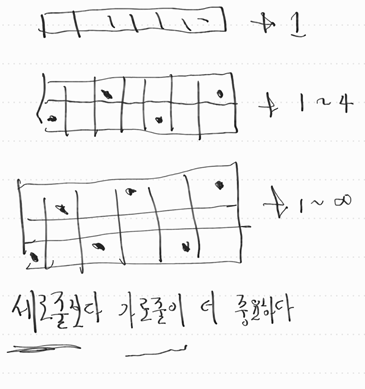 → 1
→ 1 ~ 4
→ 1 ~ ∞
세로줄보다 가로줄이 더 중요하다